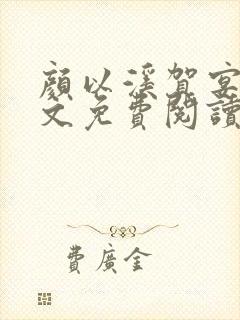 顏以溪賀宴
文免費閱讀
費廣金